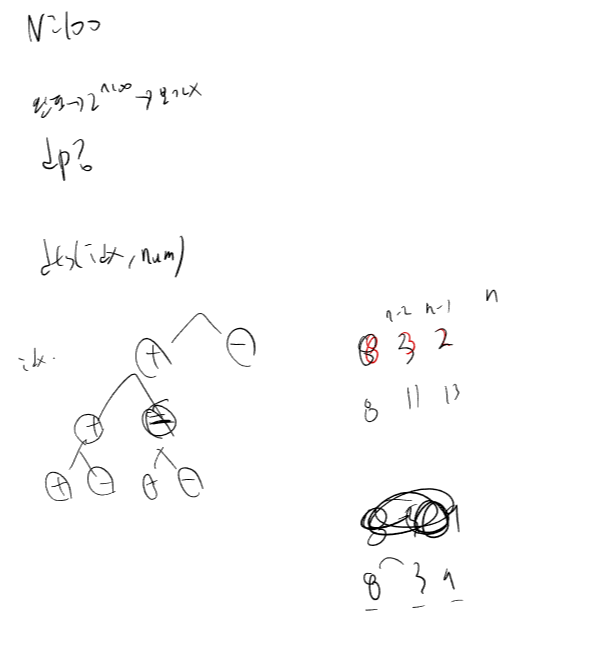 N=100
완탐→2^n100→안돼X
dp?
dfs(idx, num)
n-2 n-1 n
8 3 2
+ -
idx.
8 11 13
+ -
+ - + -
8 3 9